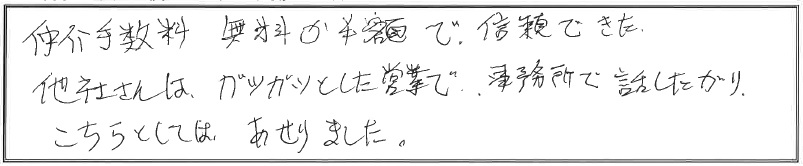 仲介手数料 無料か半額で、信頼できた。
他社さんは、ガツガツとした営業で、事務所で話したがり、
こちらとしては、あせりました。